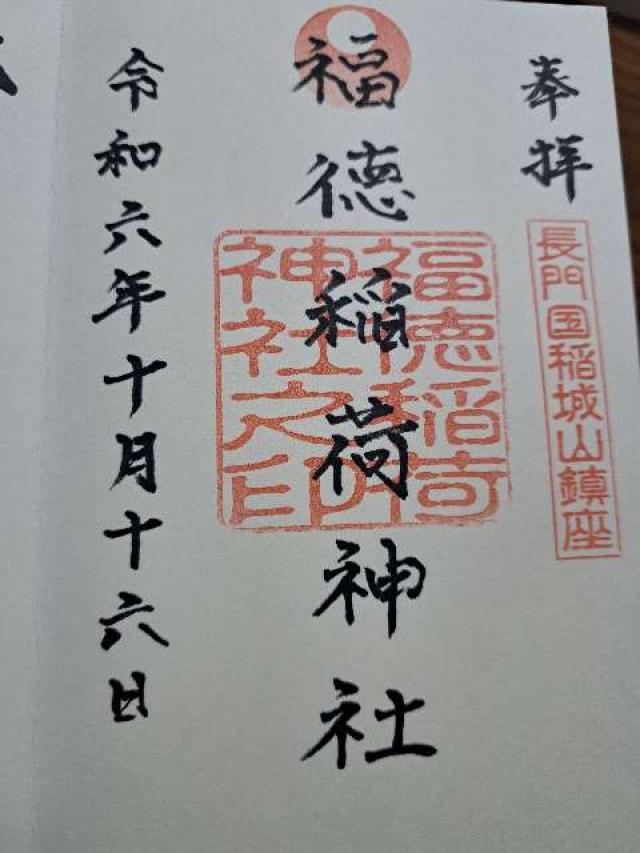 奉拝
長門国稲城山鎮座
福徳稲荷神社
福徳稲荷
神社之印
令和六年十月十六日